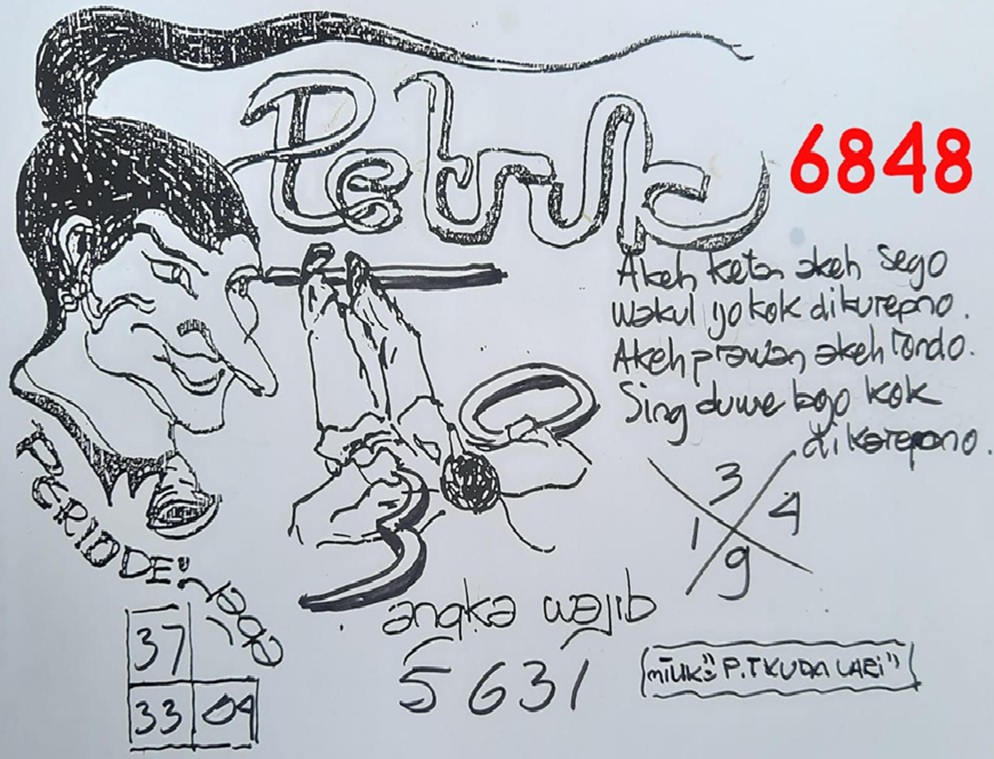 Petruk
6848
Akeh ketan akeh sego
wakul yo kok dikurepno.
Akeh prawan akeh rondo.
Sing duwe bojo kok
dikarepono.
3
1 4
9
PERIODE:
angka wajib
5631
37
33 04
milik: "P.T KUDA LARI"